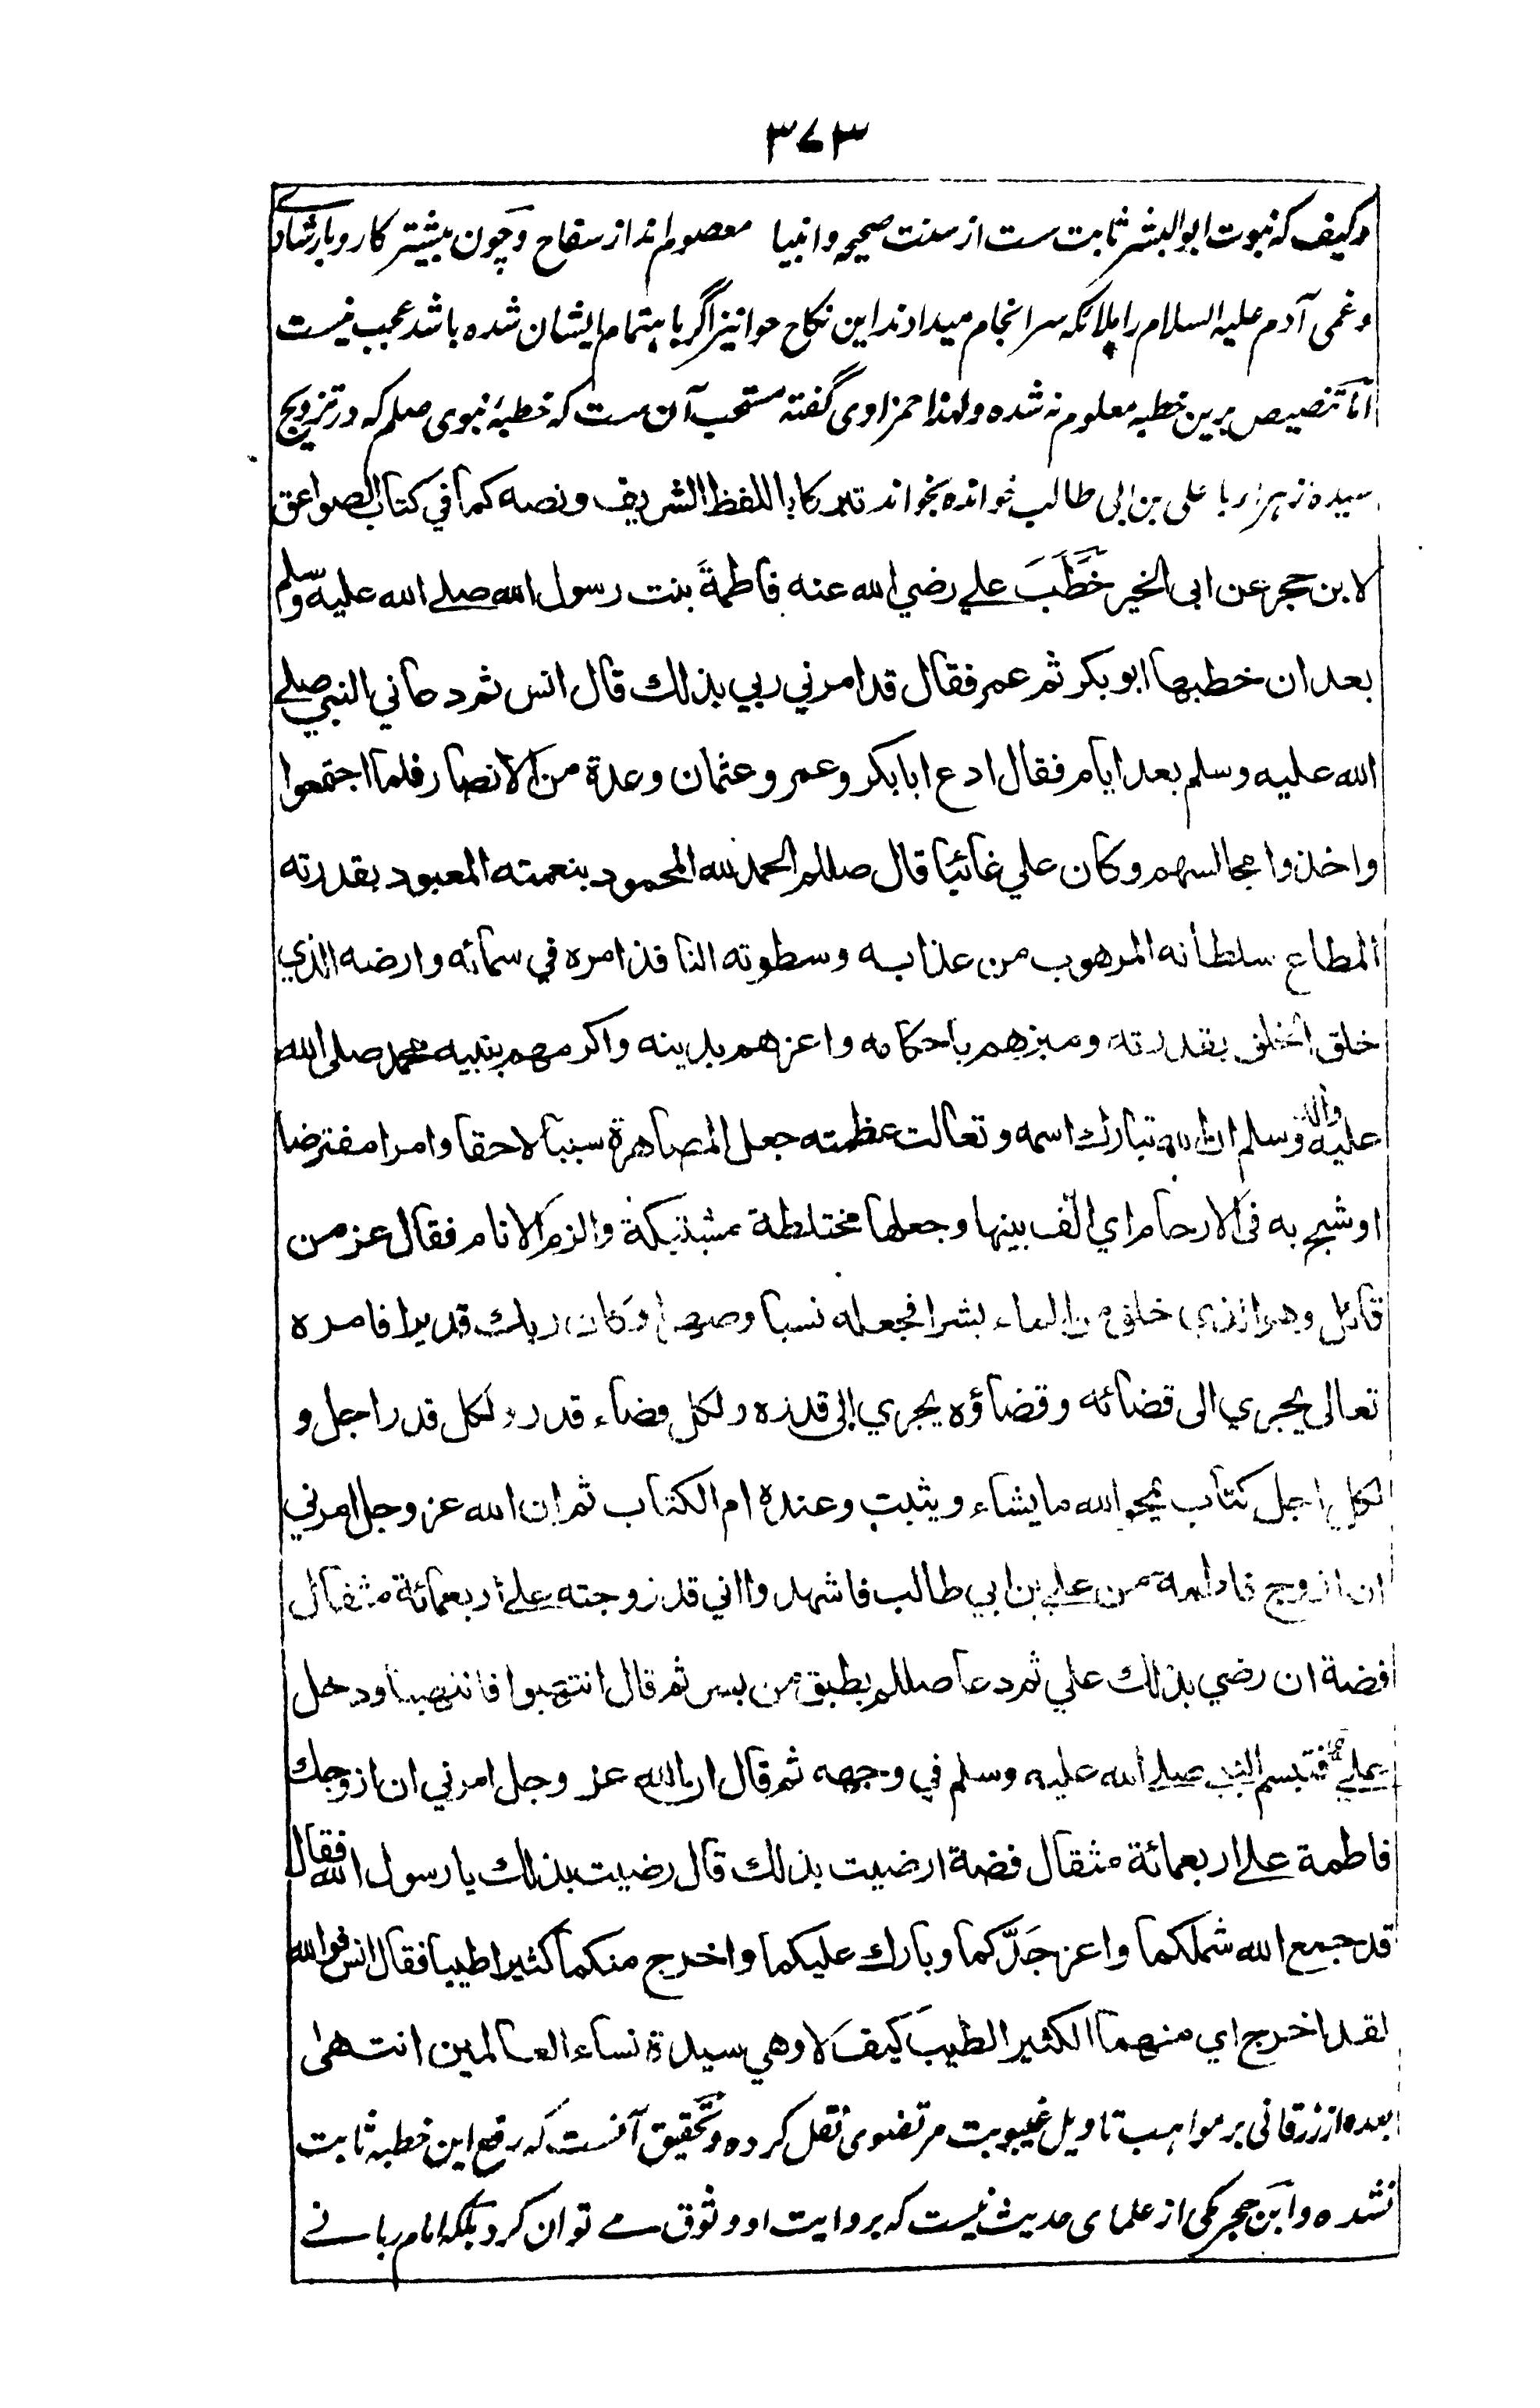 ۳۷۳
و کیف که نبوت ابوالبشر ثابت ست از سنت صحیحه و انبیا معصوم اند از سفاح و چون بیشتر کاروبار شادی
و غمی آدم علیه السلام را ملائکه سرانجام میدادند این نکاح حوا نیز اگر باهتمام ایشان شده باشد عجب نیست
امّا تنصیص برین خطبه معلوم نه شده و لهذا حمزاوی گفته مستحب آن ست که خطبهٔ نبوی صلم که در تزویج
سیده زهرا با علی بن ابی طالب خوانده بخواند تبرکا باللفظ الشریف ونصه کما في کتاب الصواعق
لابن حجر عن ابی الخیر خَطَبَ علي رضي الله عنه فاطمةَ بنت رسول الله صلے الله علیه وسلم
بعد ان خطبها ابو بکر ثم عمر فقال قد امرني ربي بذلك قال انس ثم دعاني النبي صلے
الله علیه وسلم بعد ایام فقال ادع ابا بکر وعمر وعثمان وعدة من الانصار فلما اجتمعوا
واخذوا مجالسهم وکان علي غائبًا قال صللم الحمد لله المحمود بنعمته المعبود بقدرته
المطاع سلطانه المرهوب من عذابه وسطوته النافذ امره في سمائه وارضه الذي
خلق الخلق بقدرته ومیزهم باحکامه واعزهم بدینه واکرمهم بنبیه محمد صلی الله
علیه واٰله وسلم ان الله تبارك اسمه وتعالت عظمته جعل المصاهرة سببا لاحقا وامرا مفترضا
اوشج به فی الارحام اي الّف بینها وجعلها مختلطة مشتبکة والزم الانام فقال عز من
قائل وهو الذي خلق من الماء بشرا فجعله نسبا وصهرا وکان ربك قدیرا فامره
تعالی یجري الی قضائه وقضاؤه یجري الی قدره ولکل قضاء قدر ولکل قدر اجل و
لکل اجل کتاب یمحو الله ما یشاء ویثبت وعنده ام الکتاب ثم ان الله عز وجل امرني
ان ازوج فاطمة من علي بن ابي طالب فاشهدوا اني قد زوجته علے اربعمائة مثقال
فضة ان رضي بذلك علي ثم دعا صللم بطبق من بسر ثم قال انتهبوا فانتهبنا ودخل
علي فتبسم النبي صلے الله علیه وسلم في وجهه ثم قال ان الله عز وجل امرني ان ازوجك
فاطمة علے اربعمائة مثقال فضة ارضیت بذلك قال رضیت بذلك یا رسول الله فقال
قد جمع الله شملکما واعز جَدَّکما وبارك علیکما واخرج منکما کثیرا طیبا فقال انس فوالله
لقد اخرج اي منهما الکثیر الطیب کیف لا وهي سیدة نساء العالمین انتهیٰ
بعده از زرقانی بر مواهب تاویل غیبوبت مرتضوی نقل کرده و تحقیق آنست که رفع این خطبه ثابت
نشده و ابن حجر مکی از علمای حدیث نیست که بروایت او وثوق مے توان کرد بلکه امام ربانے